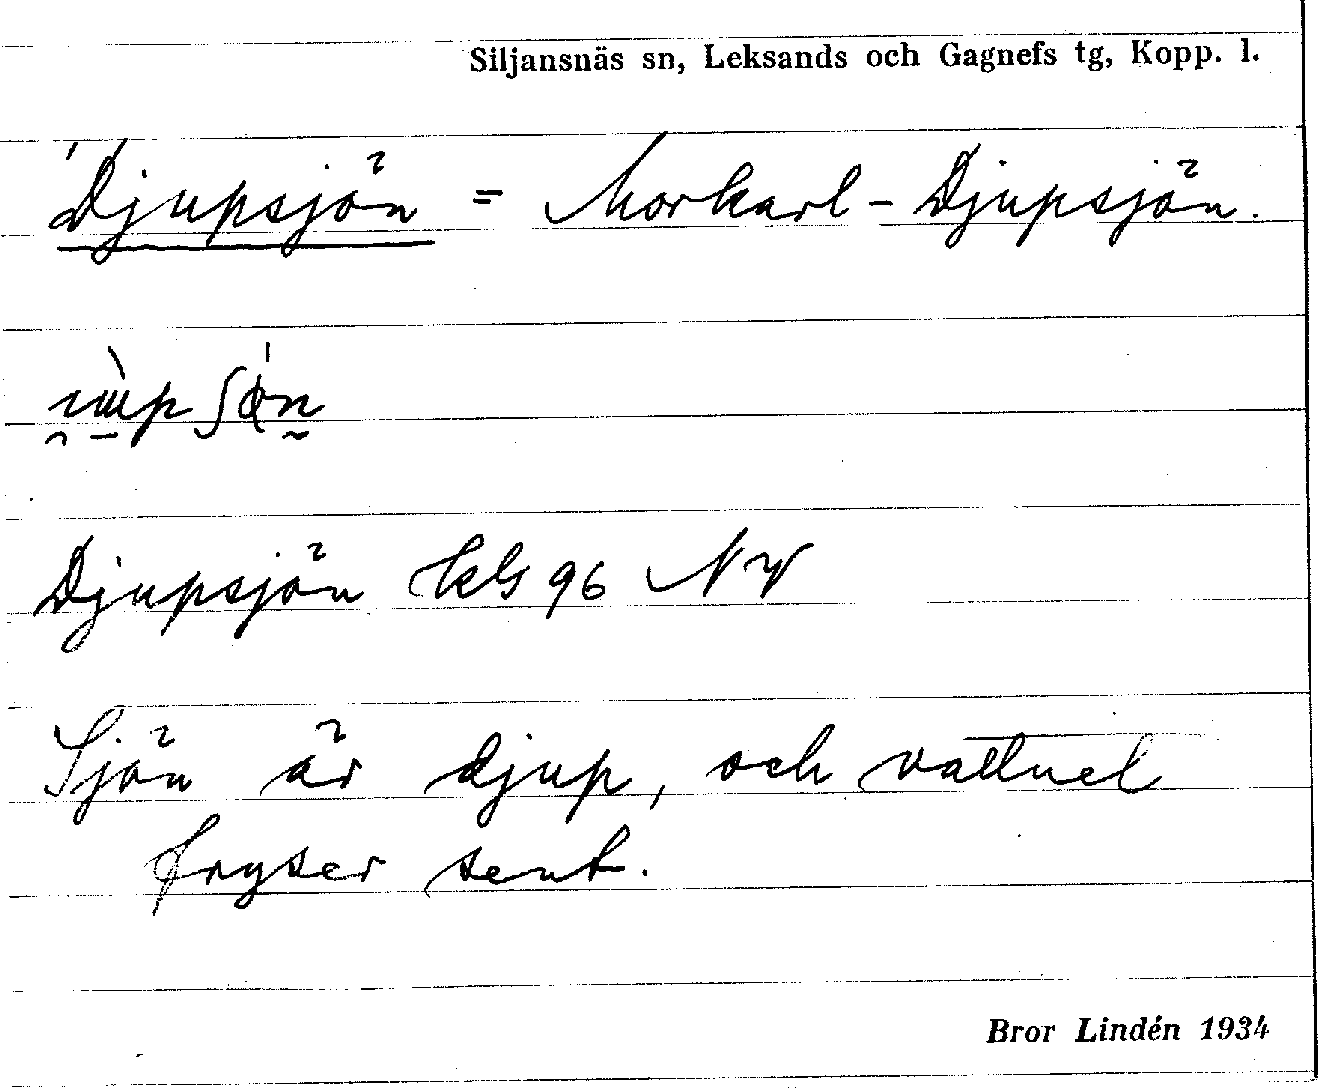 Siljansnäs sn, Leksands och Gagnefs tg, Kopp. l.
Djupsjön = Morkarl-Djupsjön.
Djupsjön kbl 96 NV
Sjön är djup, och vattnet
fryser sent.
Bror Lindén 1934